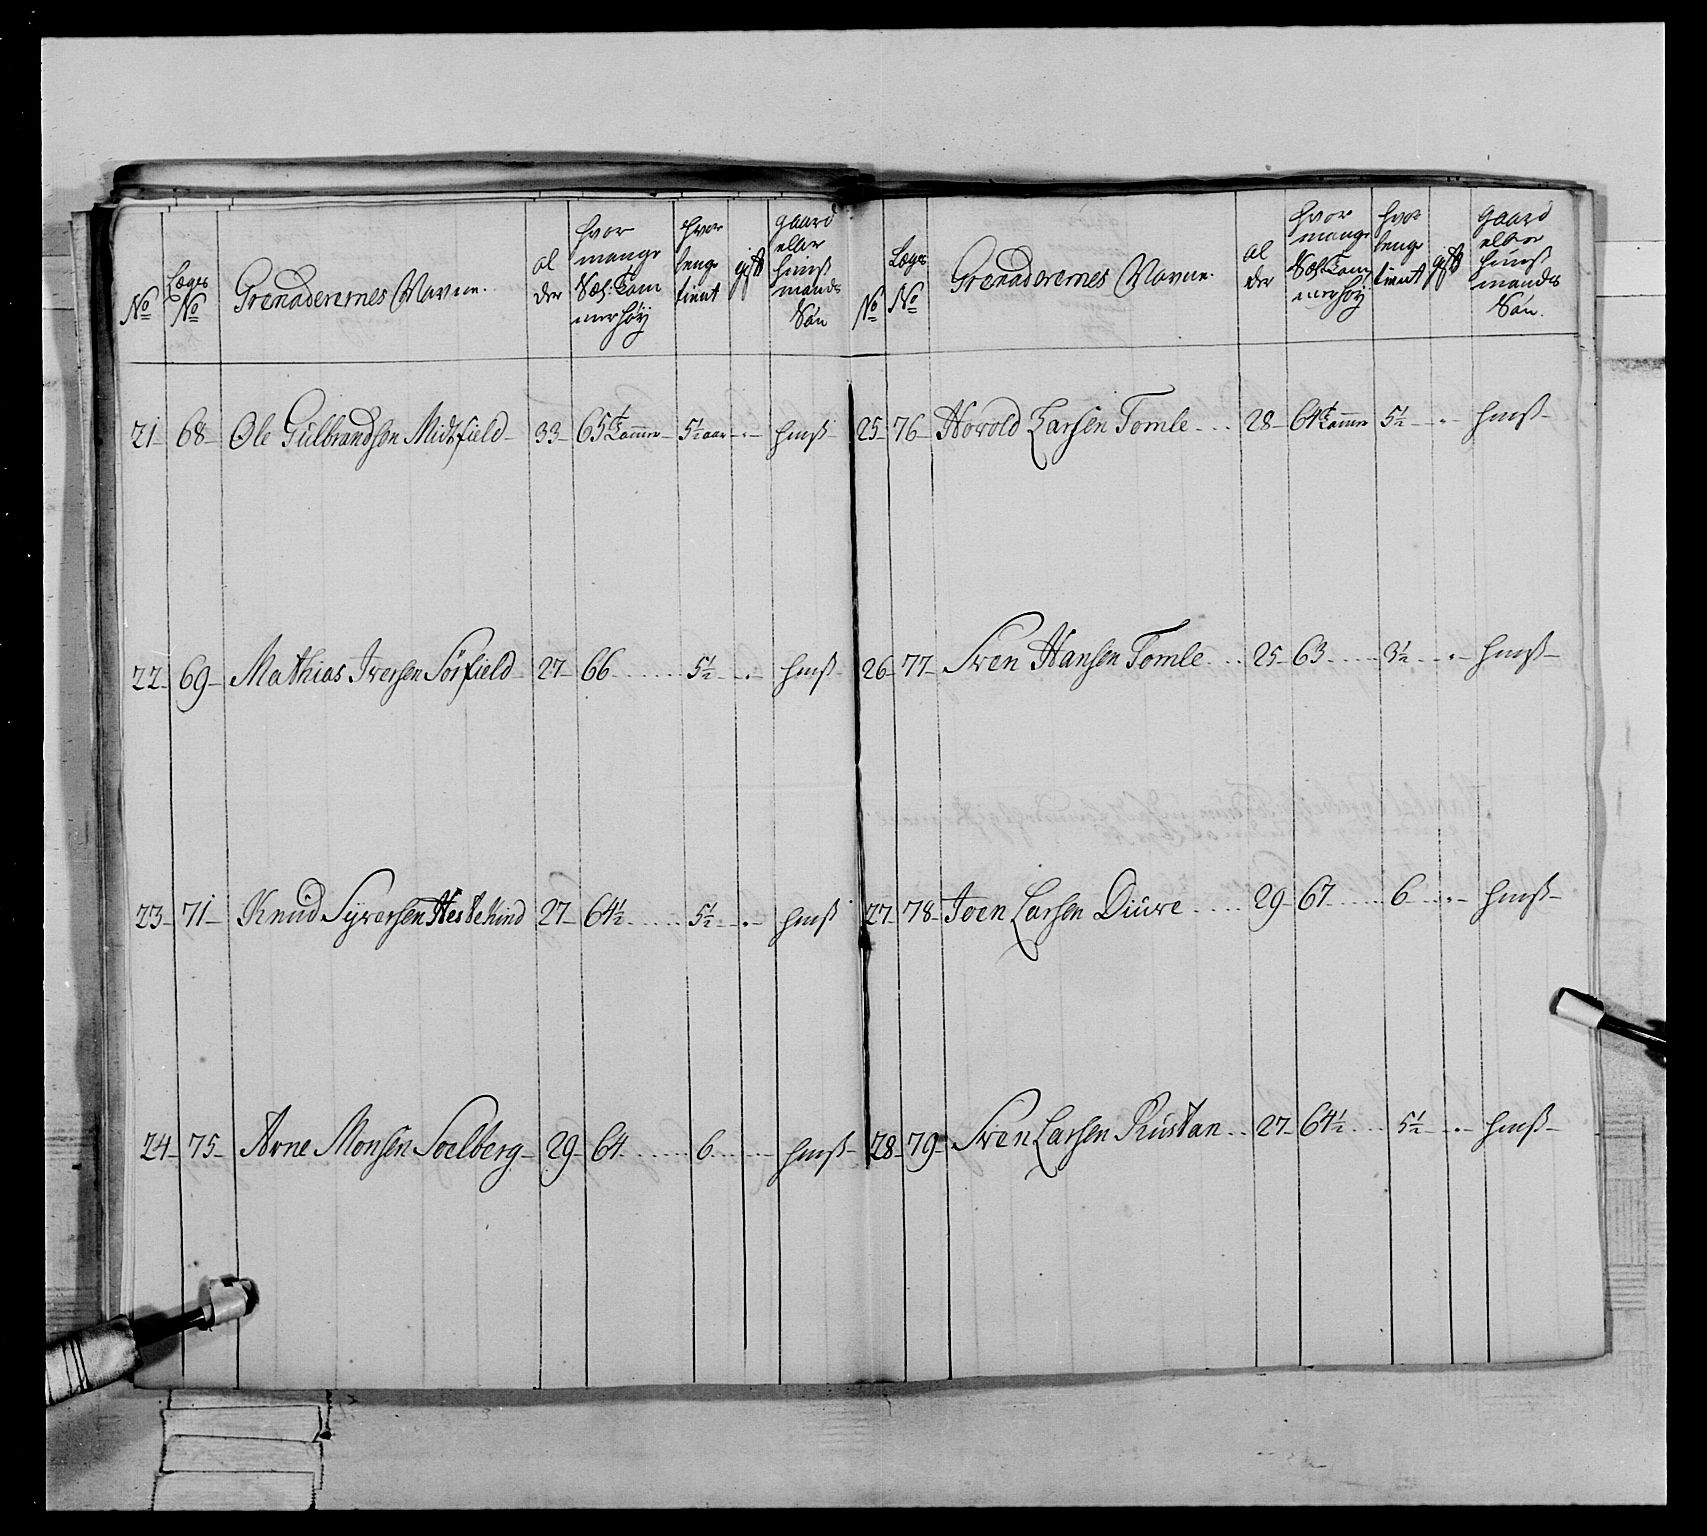 No
Læges No
Grenaderernes Navne.
al
der
hvor
mange
Sæl: Tom
mer höÿ
hvor
lenge
tient
gift
gaard
eller
huus
mands
Sön
21 - 68 - Ole Gulbrandsen Midtfield - 33 - 65½ Tomme - 5½ aar - . - hmß -
22 - 69 - Mathias Iversen Sörfield - 27 - 66 ..... 5½ - . - hmß -
23 - 71 - Knud Syversen Hesbekind - 27 - 64½ ..... 5½ - . - hmß
24 - 75 - Arne Monsen Soelberg - 29 - 64 ..... 6 ..... hmß -
No
Læges
No
Grenaderernes Navne.
al
der
hvor
mange
Sæl: Tom
mer höÿ
hvor
lenge
tient
gift
gaard
eller
huus
mandes
Sön.
25 - 76 - Horold Larsen Tomle ... 28 - 64½ Tomme 5½ - . - hmß -
26 - 77 - Sven Hansen Tomle ... 25 - 63 ..... 3½ - . - hmß -
27 - 78 - Joen Larsen Diuve ..... 29 - 67 ..... 6 - . - hmß -
28 - 79 - Sven Larsen Rustan .. 27 - 64½ ... 5½ - . - hmß -